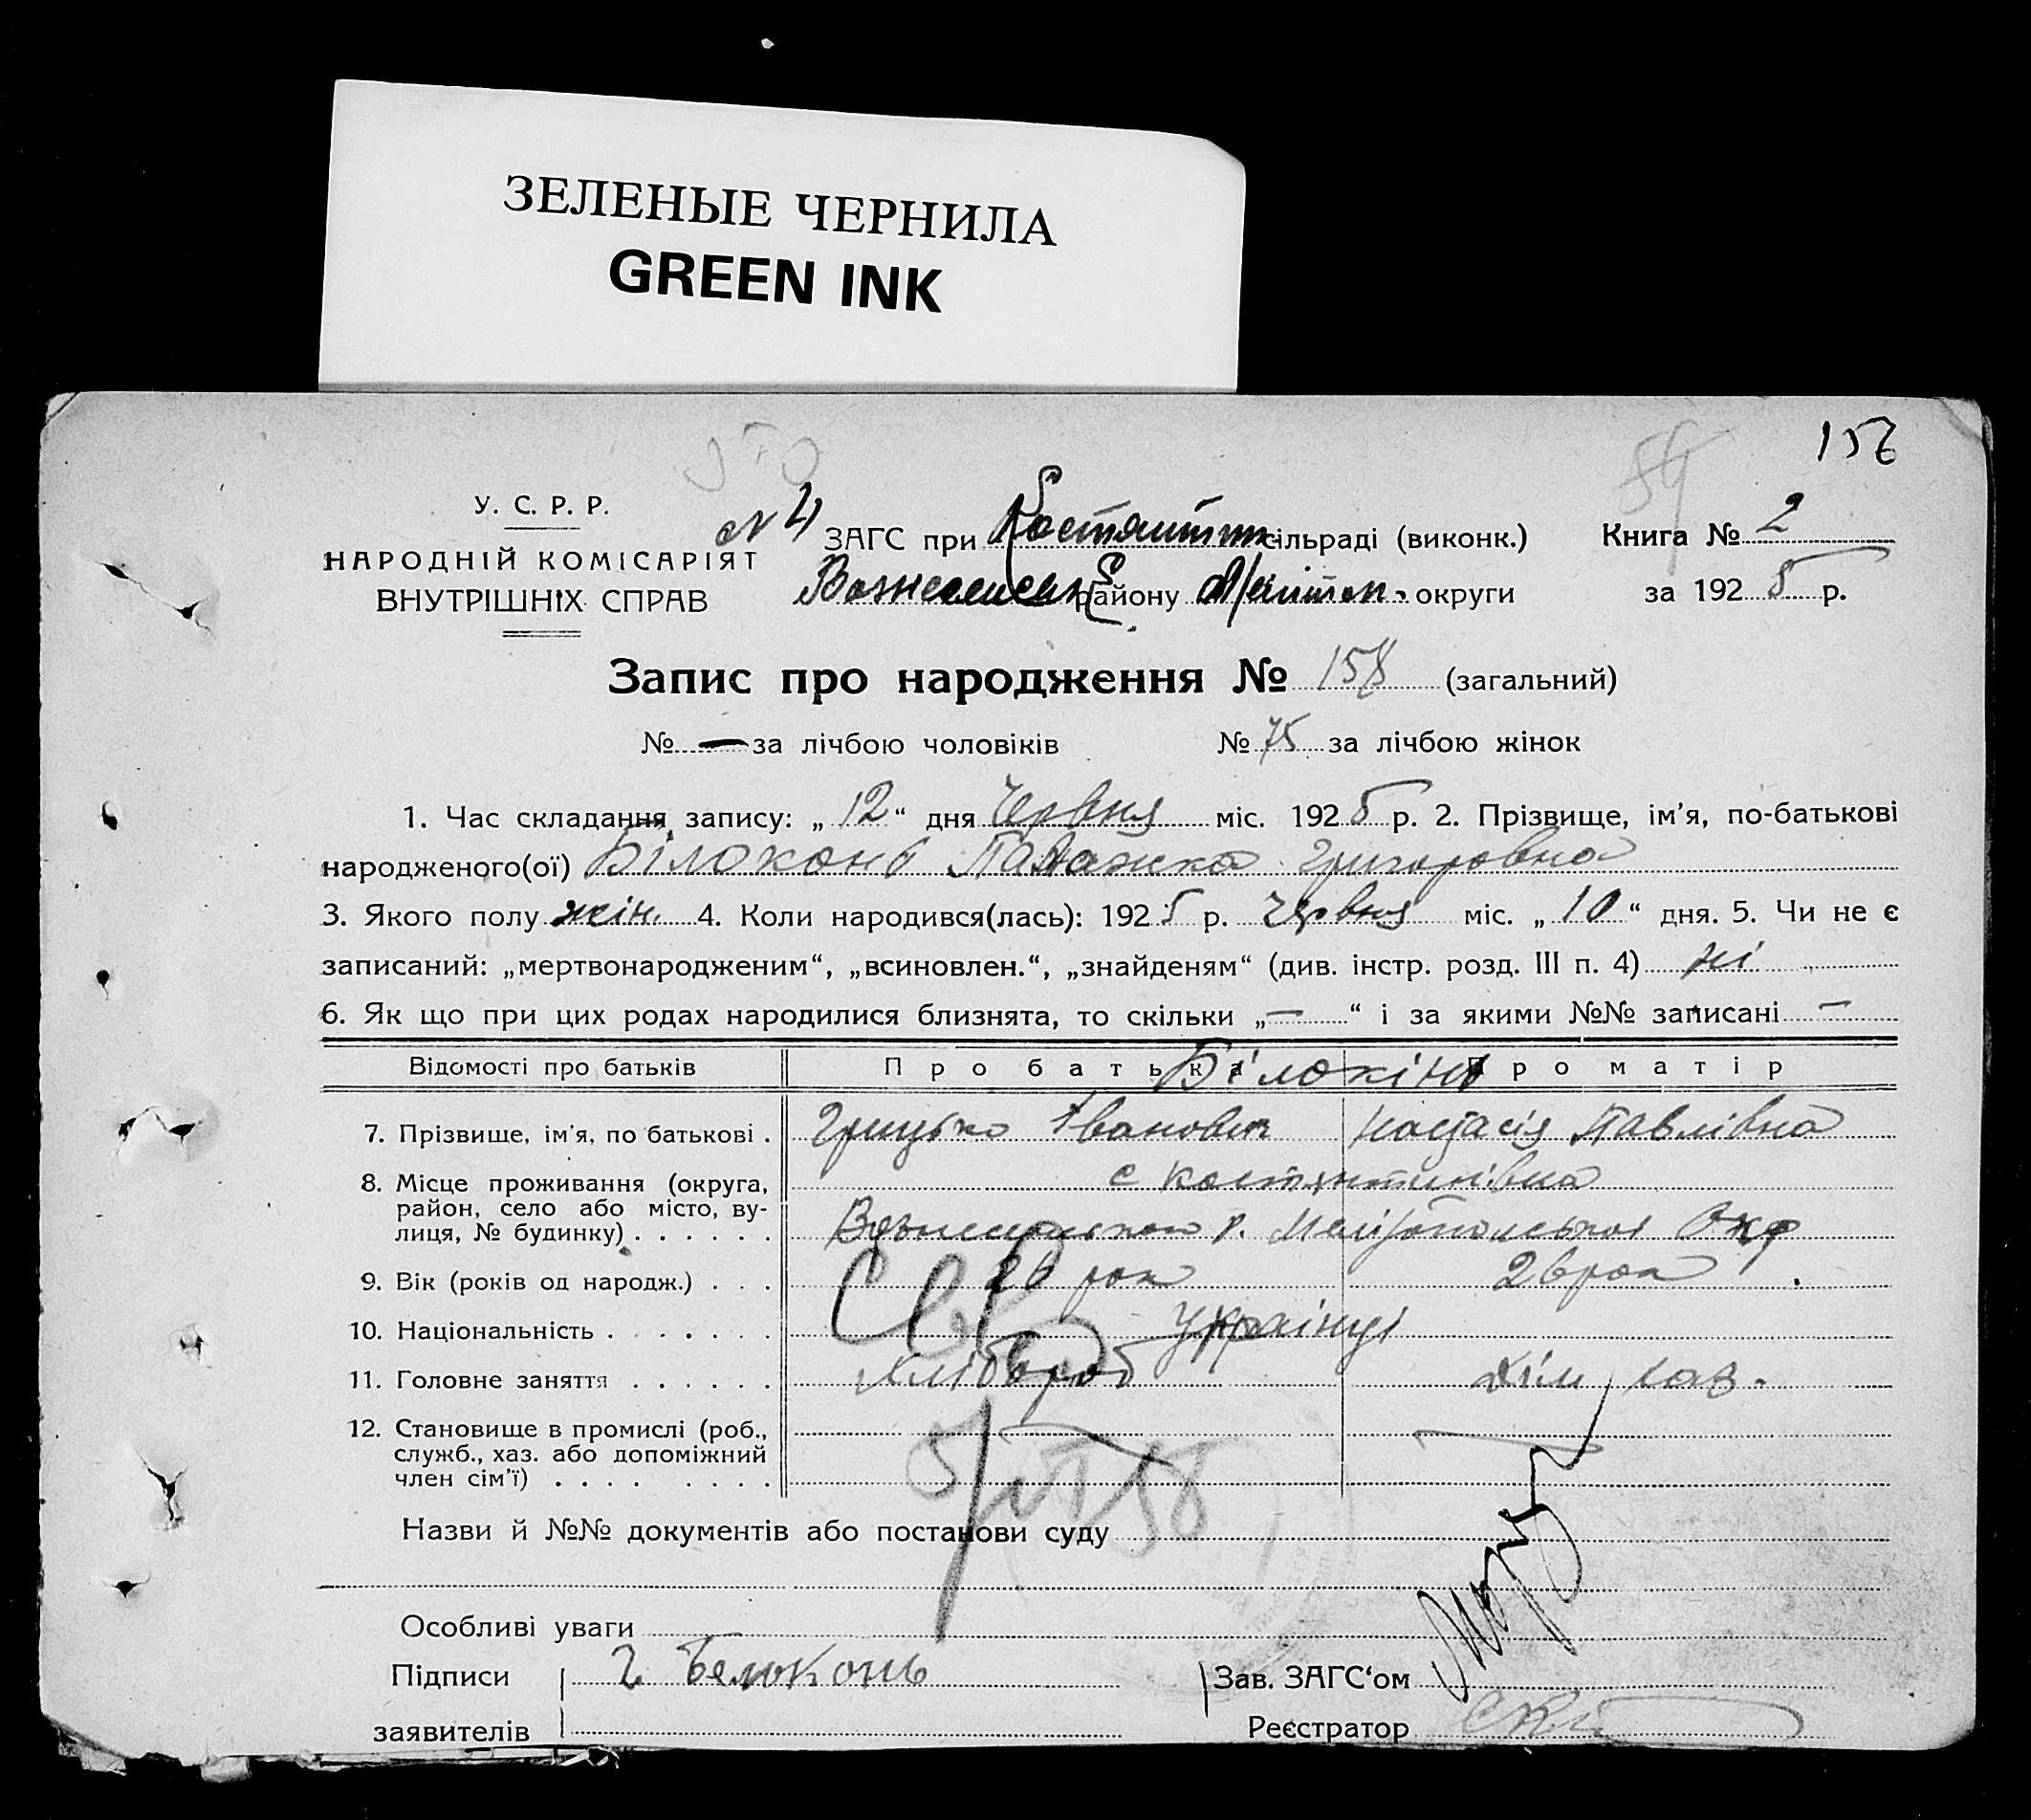 ЗЕЛЕНЫЕ ЧЕРНИЛА
GREEN INK
156
У. С. Р. Р.
НАРОДНІЙ КОМІСАРІЯТ
ВНУТРІШНІХ СПРАВ
№ 4 ЗАГС при Костянтин сільраді (виконк.) Книга № 2
Вознесенск району Меліт. округи за 1925 р.
Запис про народження № 158 (загальний)
№ — за лічбою чоловіків № 75 за лічбою жінок
1. Час складання запису: „12“ дня Червня міс. 1925 р. 2. Прізвище, ім'я, по-батькові
народженого(ої) Білоконь Палажка Григоровна
3. Якого полу жін. 4. Коли народився(лась): 1925 р. Червня міс. „10“ дня. 5. Чи не є
записаний: „мертвонародженим“, „всиновлен.“, „знайденям“ (див. інстр. розд. III п. 4) ні
6. Як що при цих родах народилися близнята, то скільки „—“ і за якими №№ записані —
Відомості про батьків Про батька Про матір
Білокінь
7. Прізвище, ім'я, по батькові . Грицько Іванович Настасія Павлівна
8. Місце проживання (округа, с Костянтинівка
район, село або місто, ву-
лиця, № будинку) . . . . . . Вознесенської р. Мелітопольської Окр
9. Вік (років од народж.) . . . 26 рок 26 рок
10. Національність . . . . . . . Українці
11. Головне заняття . . . . . . Хлібороб Дім. хаз.
12. Становище в промислі (роб.,
служб., хаз. або допоміжний
член сім'ї) . . . . . . . .
Назви й №№ документів або постанови суду
Особливі уваги
Підписи Г Белоконь Зав. ЗАГС‘ом
заявителів Реєстратор